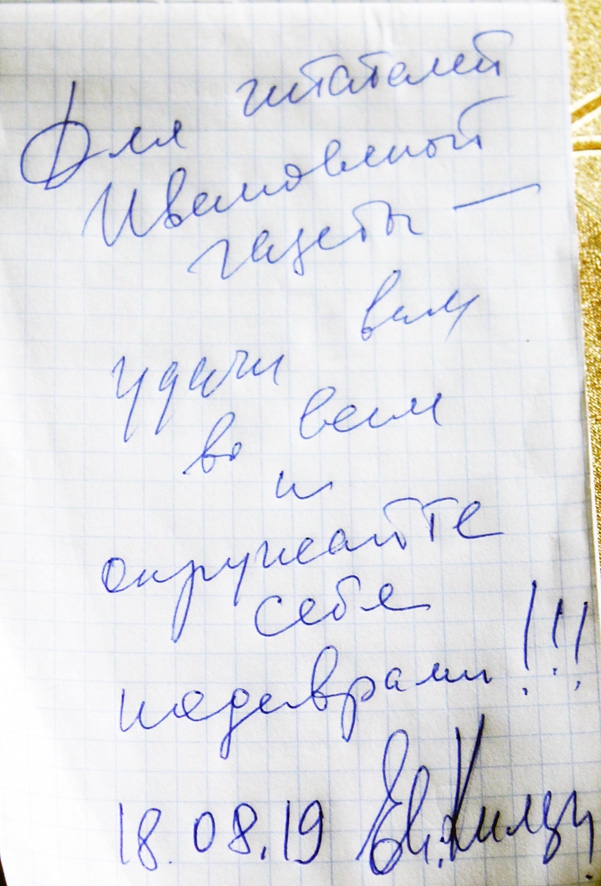 Для читателей
Ивановской
газеты —
удачи вам
во всем
и
окружайте
себя
шедеврами!!!
18.08.19